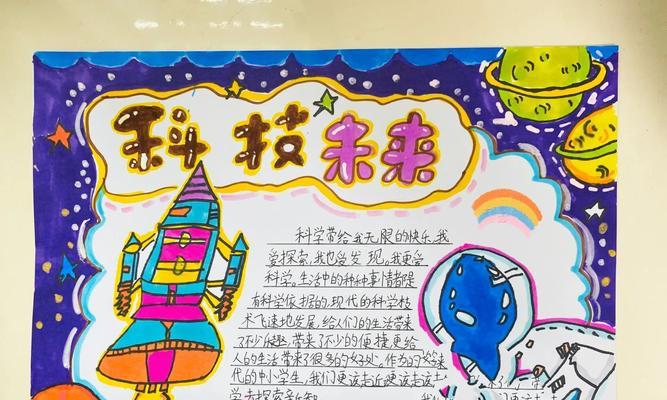 科技未来
科学带给我无限的快乐,我
爱探索,我也爱发现。我更爱
科学。生活中的种种事情都是
有科学依据的,现代的科学技
术飞速地发展,给人们的生活带来
了不少乐趣,带来了不少的便捷更给
人的生活带来了很多的好处。作为
代的中小学生,我们更该走近
学去探索